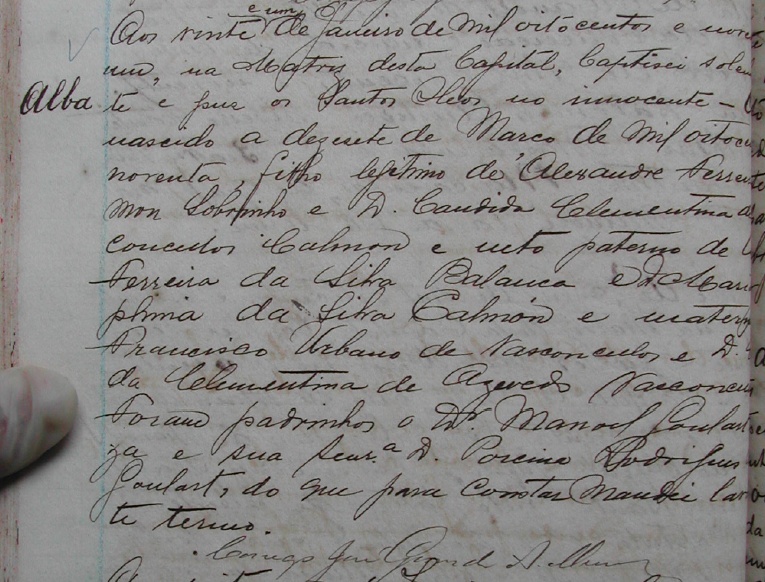 e um
Aos vinte de Janeiro de mil oitocentos e noven
um, na Matriz desta Capital, baptisei solem
Alba
te e puz os Santos Oleos no innocente -
nascido a dezesete de Março de mil oitocen
noventa, filho legitimo de Alexandre Ferrei
mon Sobrinho e D. Candida Clementina de
concellos Calmon e neto paterno de
Ferreira da Silva Balauca e D. Maria
phina da Silva Calmon e matern
Francisco Urbano de Vasconcellos e D.
da Clementina de Azevedo Vasconcell
Foram padrinhos o Dr. Manoel Goulart
za e sua Senr.a D. Porcina Rodrigues
Goulart, do que para constar mandei lavr
te termo.
Conego José